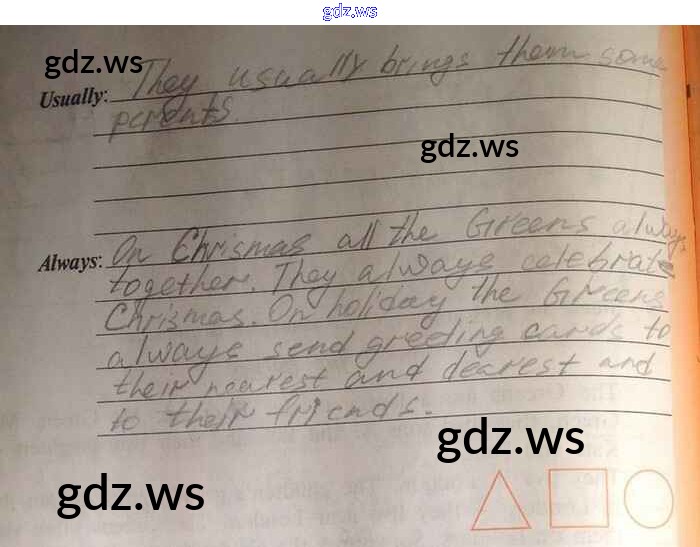 gdz.ws
gdz.ws
Usually: They usually brings them some
parents.
gdz.ws
Always: On Chrismas all the Greens always
together. They always celebrate
Chrismas. On holiday the Greens
always send greeting cards to
their nearest and dearest and
to their friends.
gdz.ws
gdz.ws